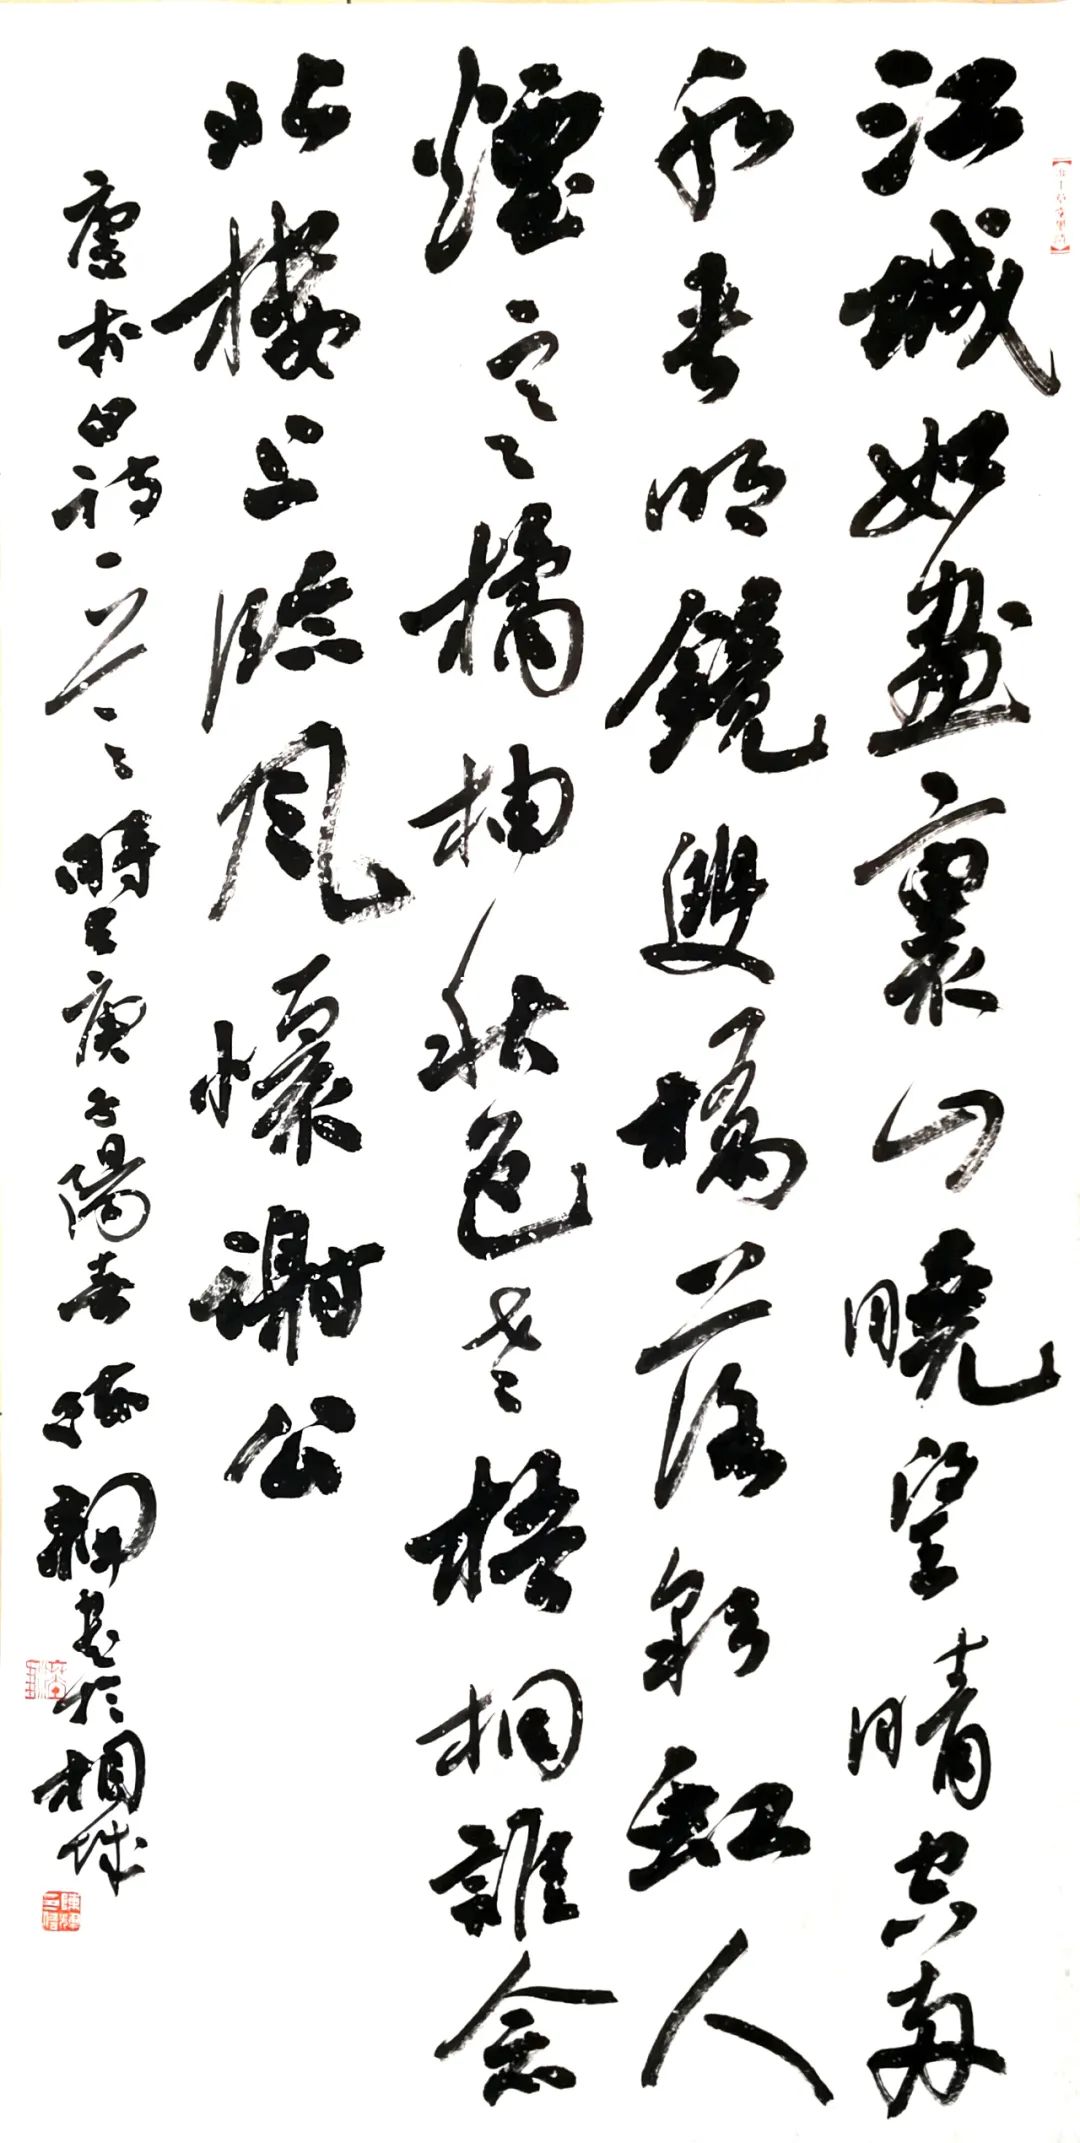 江城如畫裏山曉望晴空兩
水夾明鏡雙橋落彩虹人
煙寒橘柚秋色老梧桐誰念
北樓上臨風懷謝公
李白詩一首時庚子陽春書於相城